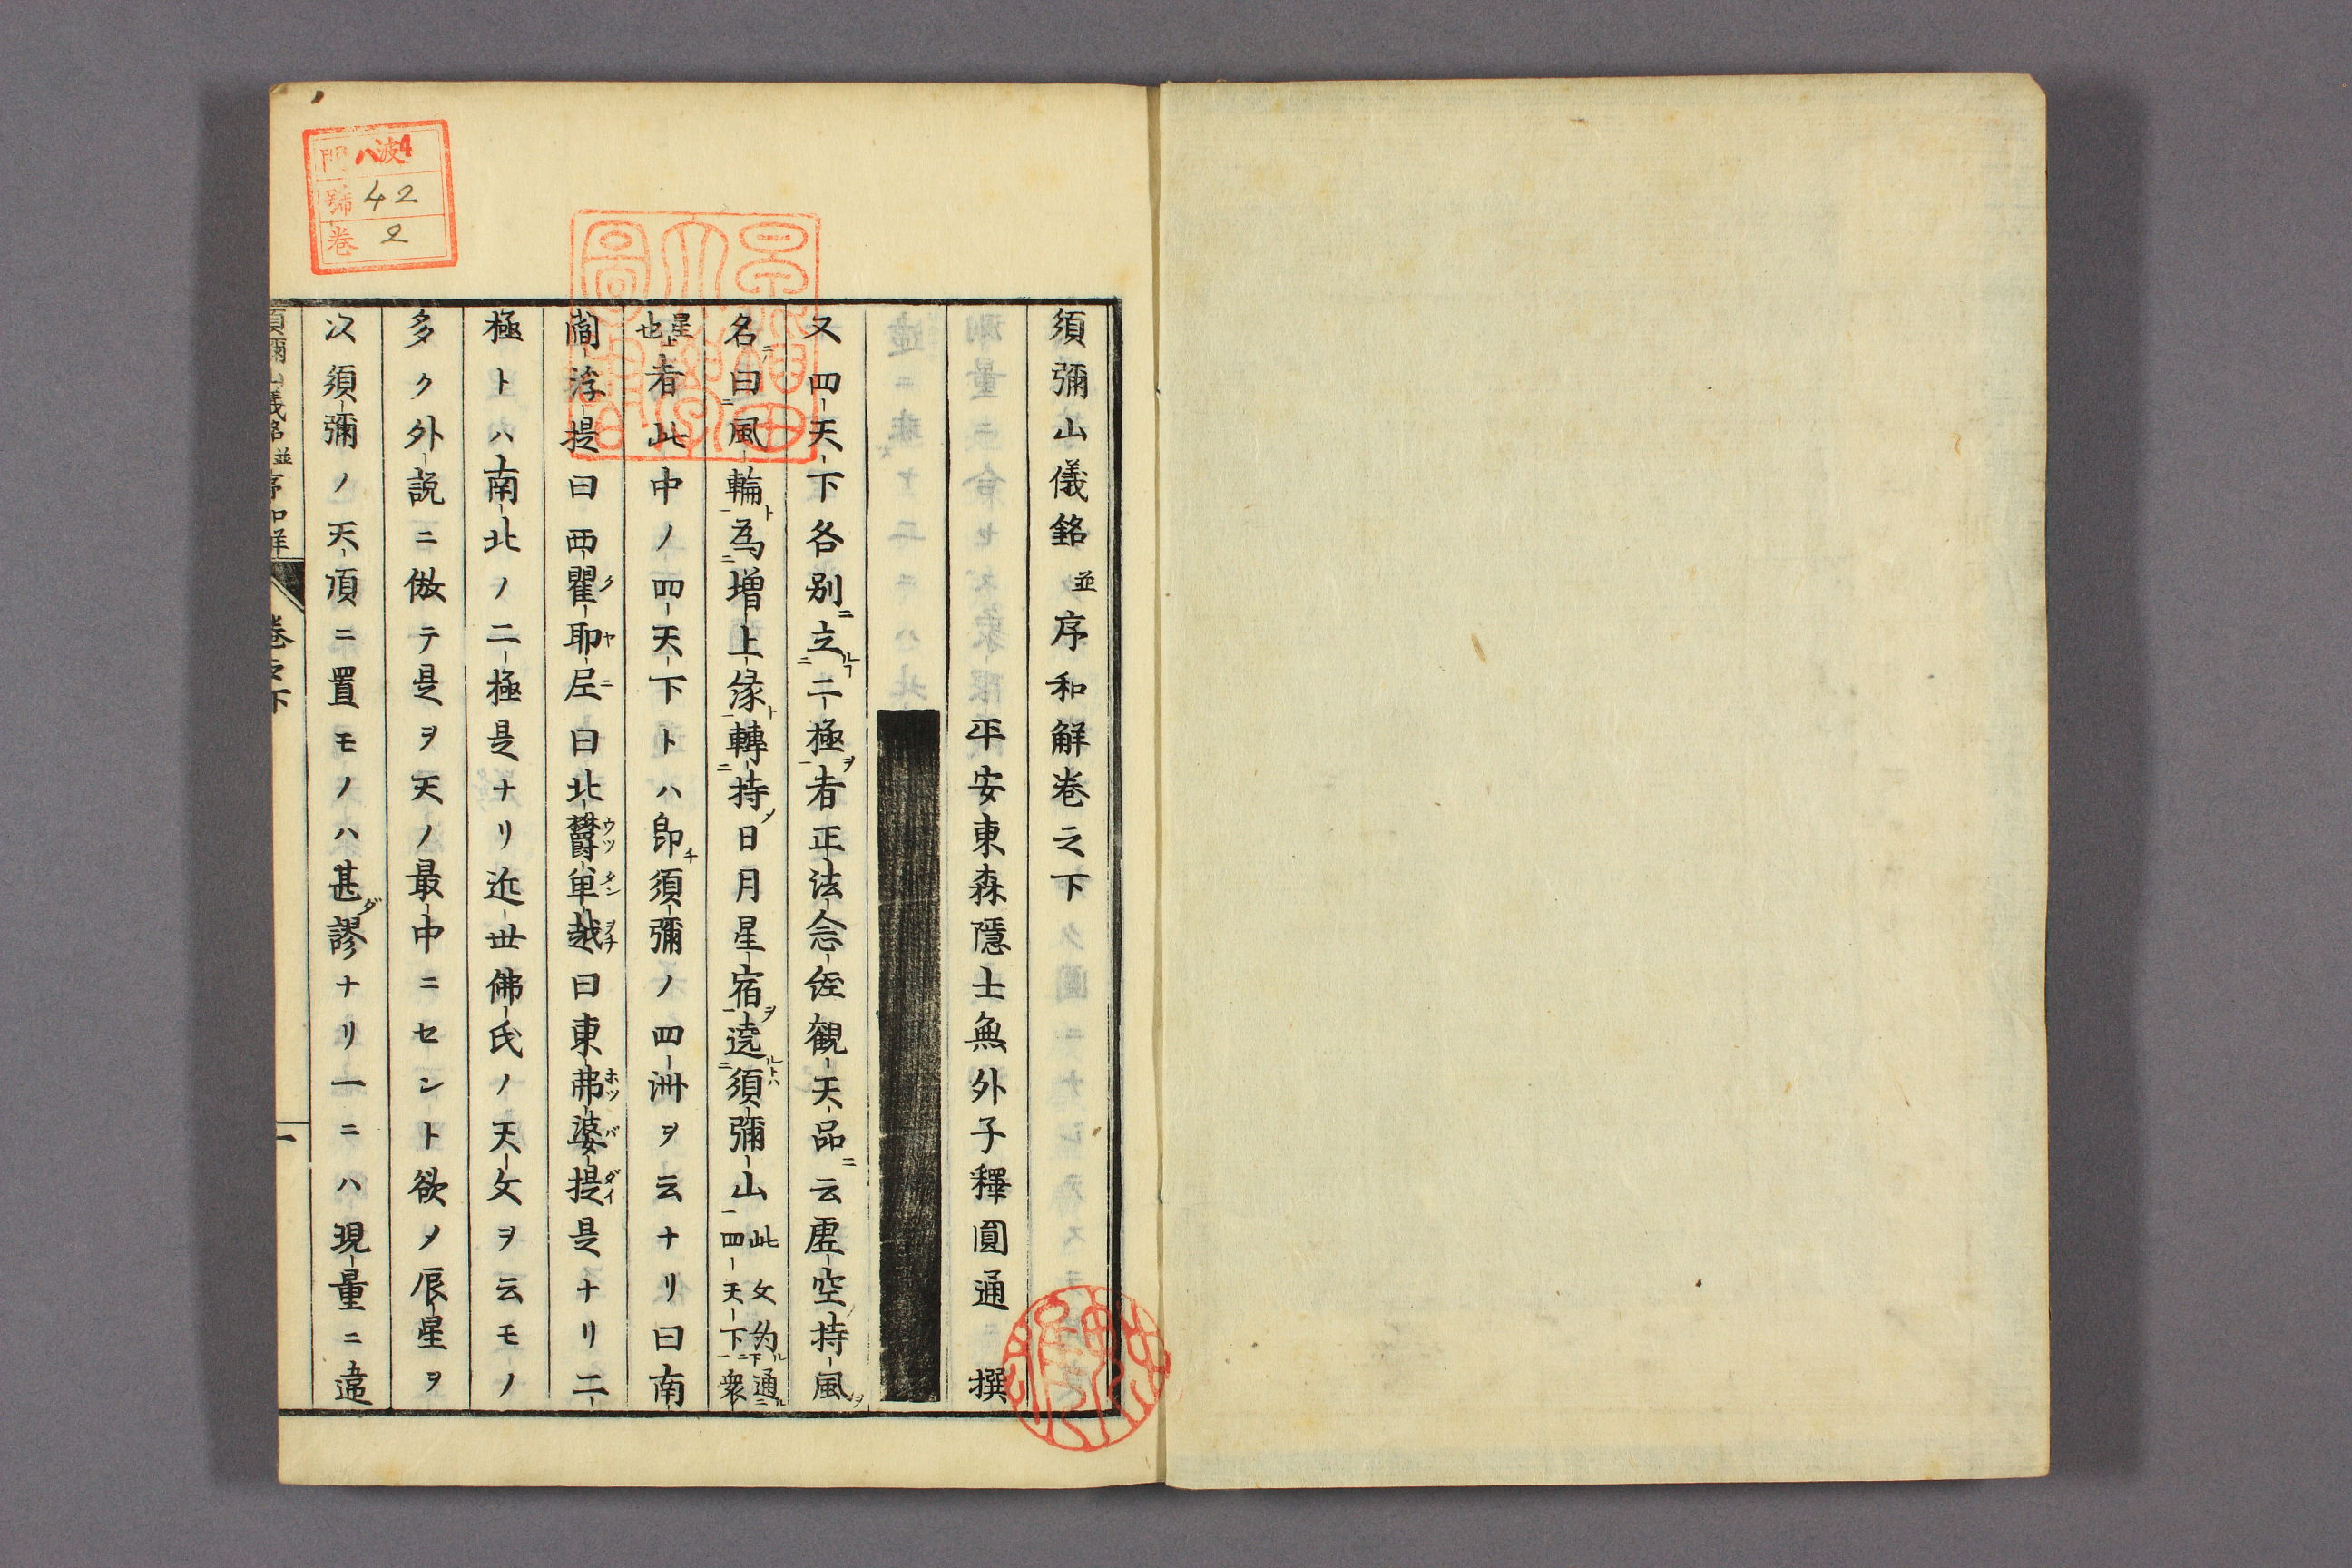 須彌山儀銘並序和解巻之下
平安東森隱士無外子釋圓通 撰
又四天下各別ニ立ルヿ二極ヲ者正法念經觀天品ニ云虚空持風ヲ
名テ曰風輪ト為増上縁ト轉持ノ日月星宿ヲ遶ルトハ須彌山此文約ル通ル四天下ニ衆
星ト也者此中ノ四天下トハ卽チ須彌ノ四洲ヲ云ナリ曰南
閻浮提曰西瞿耶尼曰北欝單越曰東弗婆提是ナリ二
極トハ南北ノ二極是ナリ近世佛氏ノ天文ヲ云モノ
多ク外説ニ倣テ是ヲ天ノ最中ニセント欲メ辰星ヲ
次須彌ノ天頂ニ置モノハ甚ダ謬ナリ一ニハ現量ニ違
須彌山儀銘並序和解 巻之下 一
門 八波4
號 42
巻 2